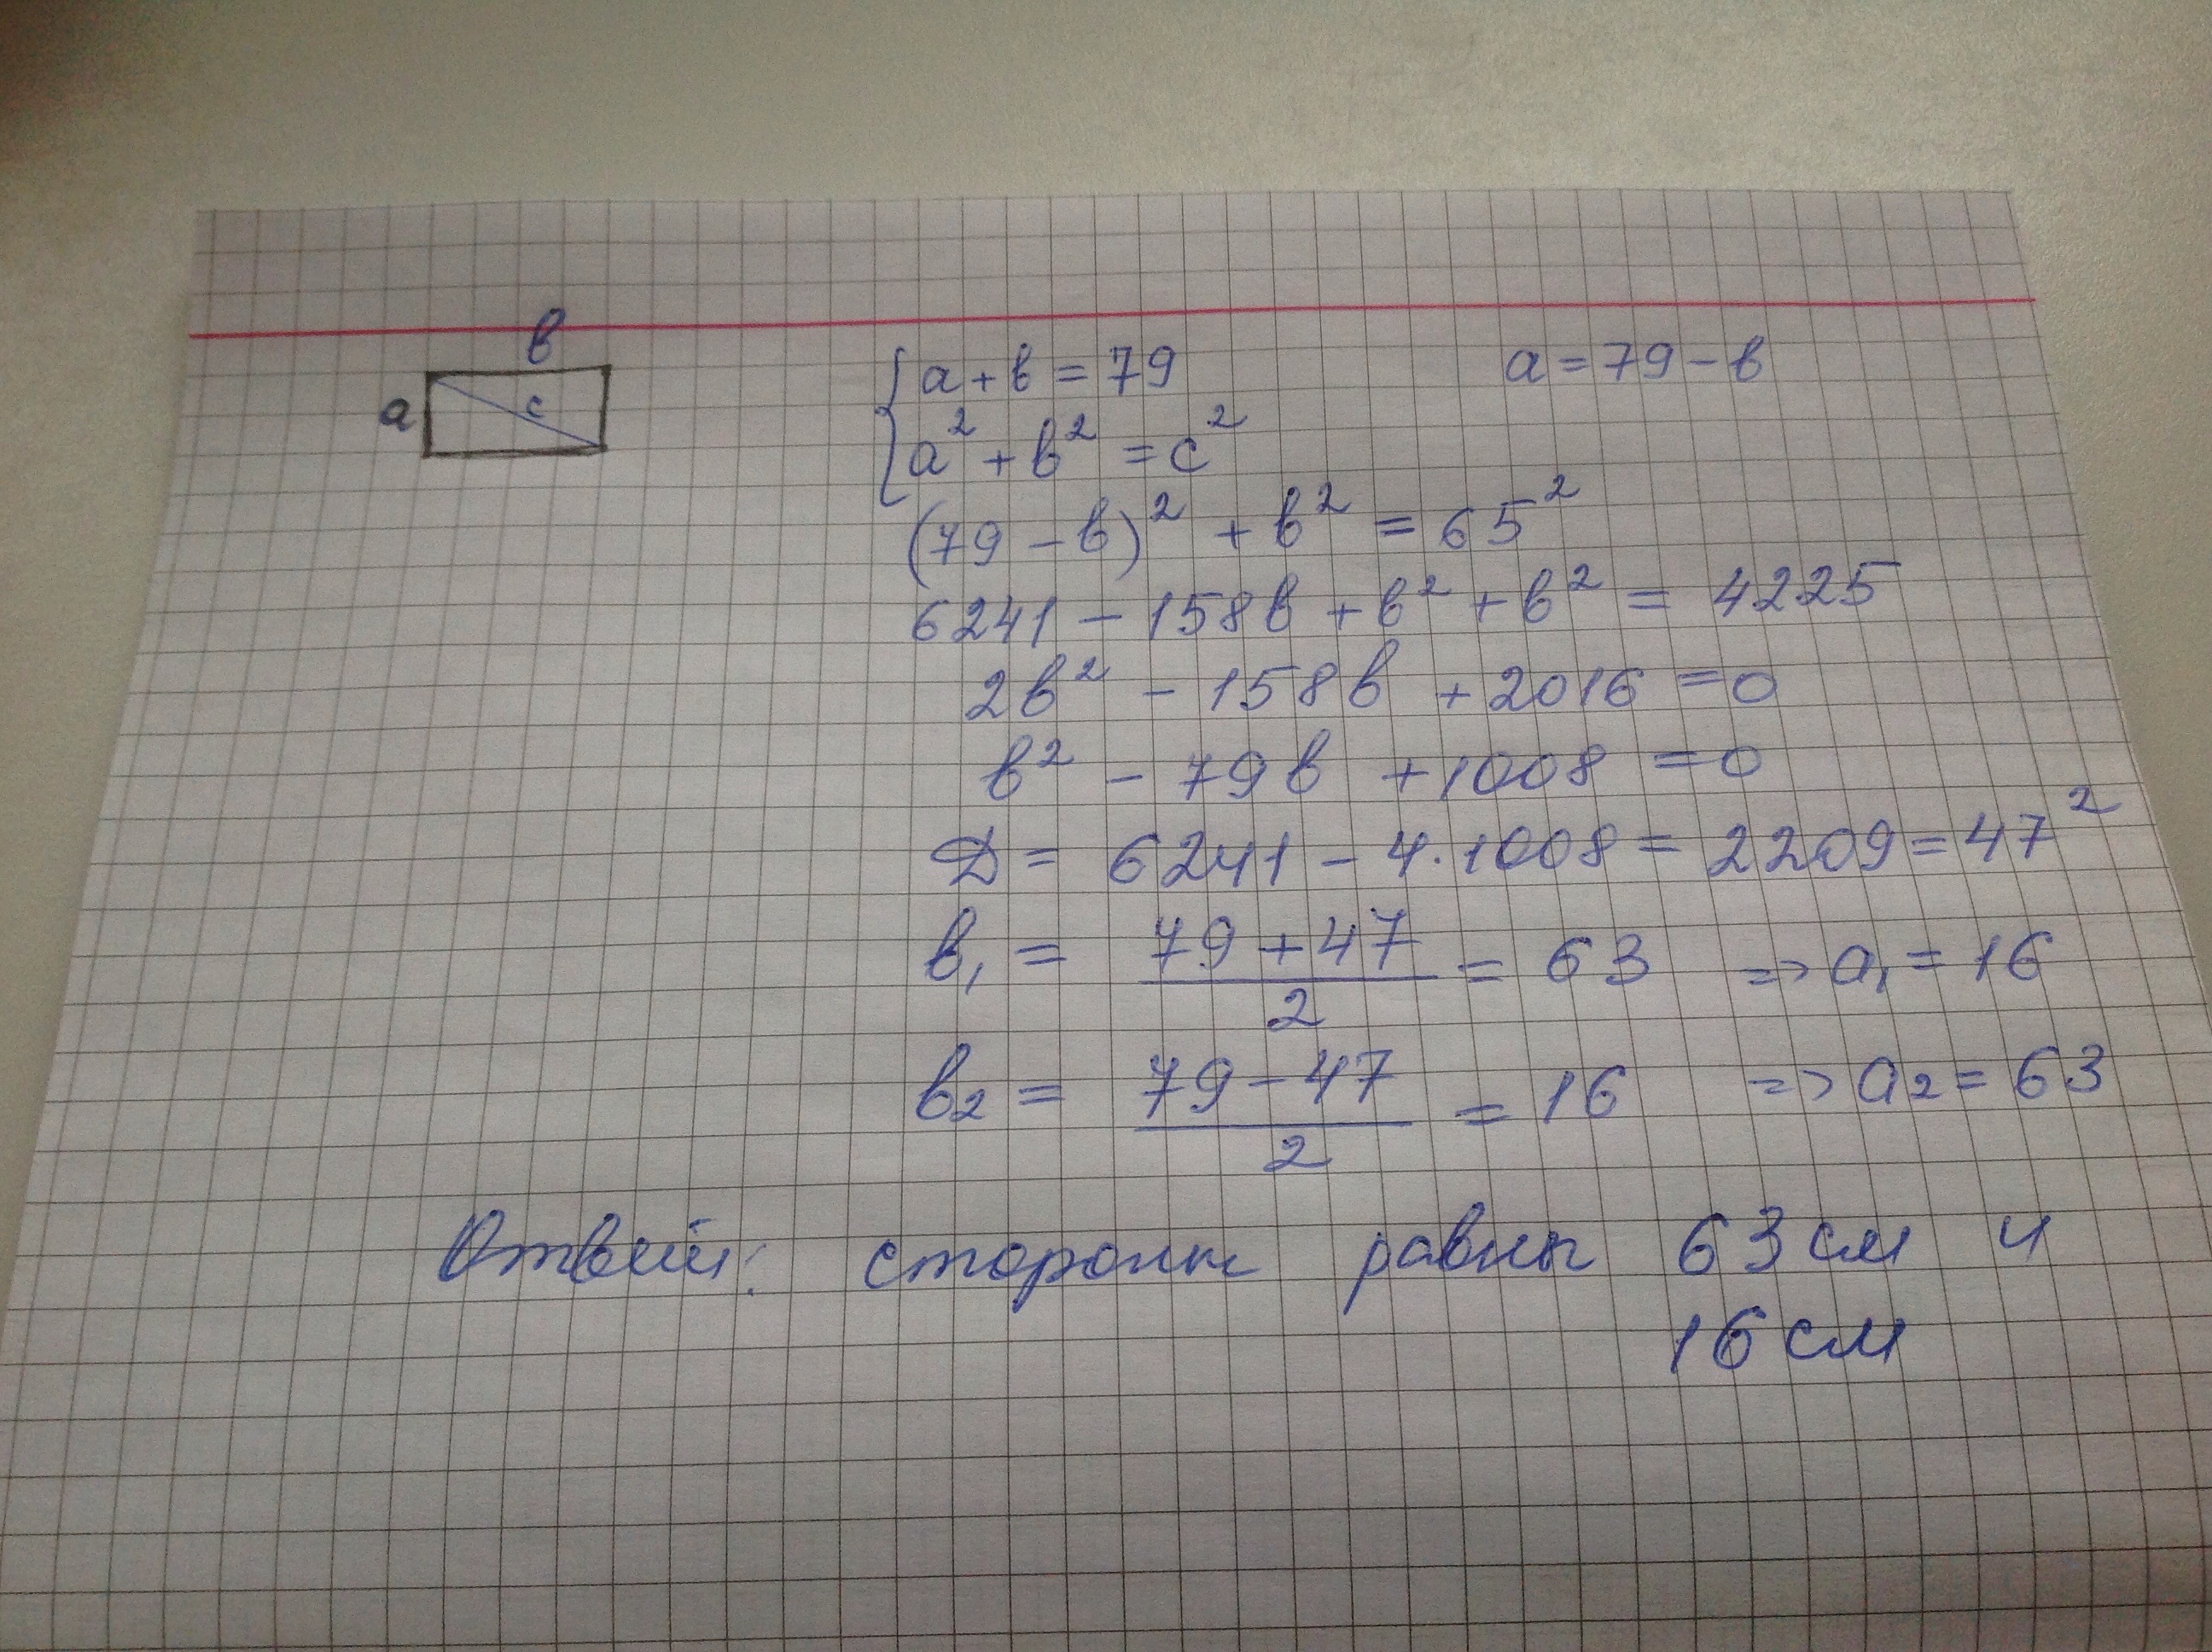 в
a
c
a + в = 79
a = 79 - в
a² + в² = c²
(79 - в)² + в² = 65²
6241 - 158в + в² + в² = 4225
2в² - 158в + 2016 = 0
в² - 79в + 1008 = 0
Д = 6241 - 4·1008 = 2209 = 47²
в₁ = (79 + 47)/2 = 63 => a₁ = 16
в₂ = (79 - 47)/2 = 16 => a₂ = 63
Ответ: стороны равны 63 см и
16 см